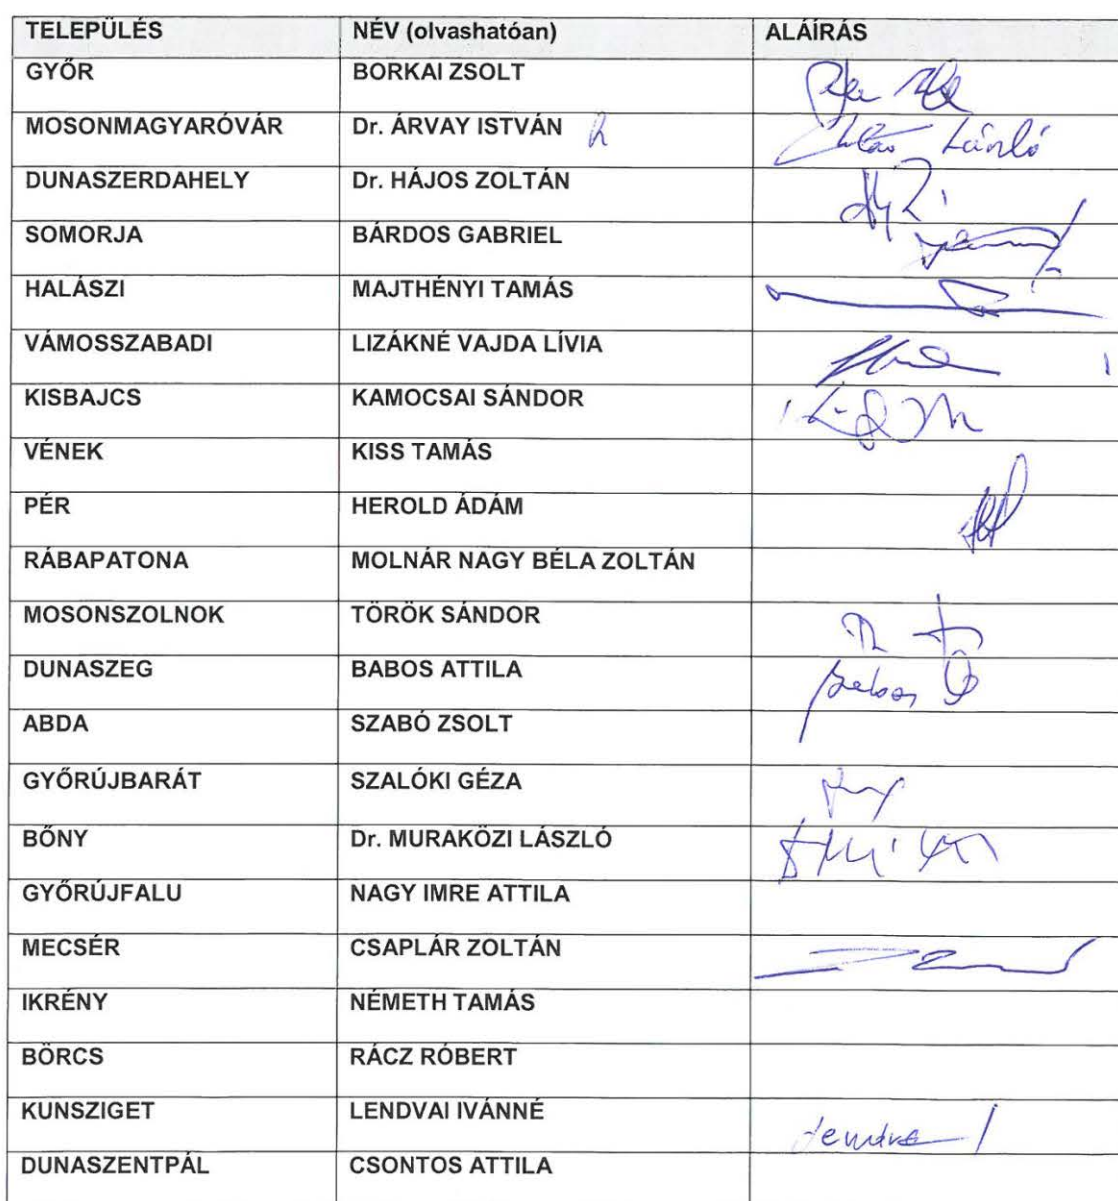 TELEPÜLÉS NÉV (olvashatóan) ALÁÍRÁS
GYŐR BORKAI ZSOLT
MOSONMAGYARÓVÁR Dr. ÁRVAY ISTVÁN László
DUNASZERDAHELY Dr. HÁJOS ZOLTÁN
SOMORJA BÁRDOS GABRIEL
HALÁSZI MAJTHÉNYI TAMÁS
VÁMOSSZABADI LIZÁKNÉ VAJDA LÍVIA
KISBAJCS KAMOCSAI SÁNDOR
VÉNEK KISS TAMÁS
PÉR HEROLD ÁDÁM
RÁBAPATONA MOLNÁR NAGY BÉLA ZOLTÁN
MOSONSZOLNOK TÖRÖK SÁNDOR
DUNASZEG BABOS ATTILA Babos
ABDA SZABÓ ZSOLT
GYŐRÚJBARÁT SZALÓKI GÉZA
BŐNY Dr. MURAKÖZI LÁSZLÓ
GYŐRÚJFALU NAGY IMRE ATTILA
MECSÉR CSAPLÁR ZOLTÁN
IKRÉNY NÉMETH TAMÁS
BÖRCS RÁCZ RÓBERT
KUNSZIGET LENDVAI IVÁNNÉ
DUNASZENTPÁL CSONTOS ATTILA